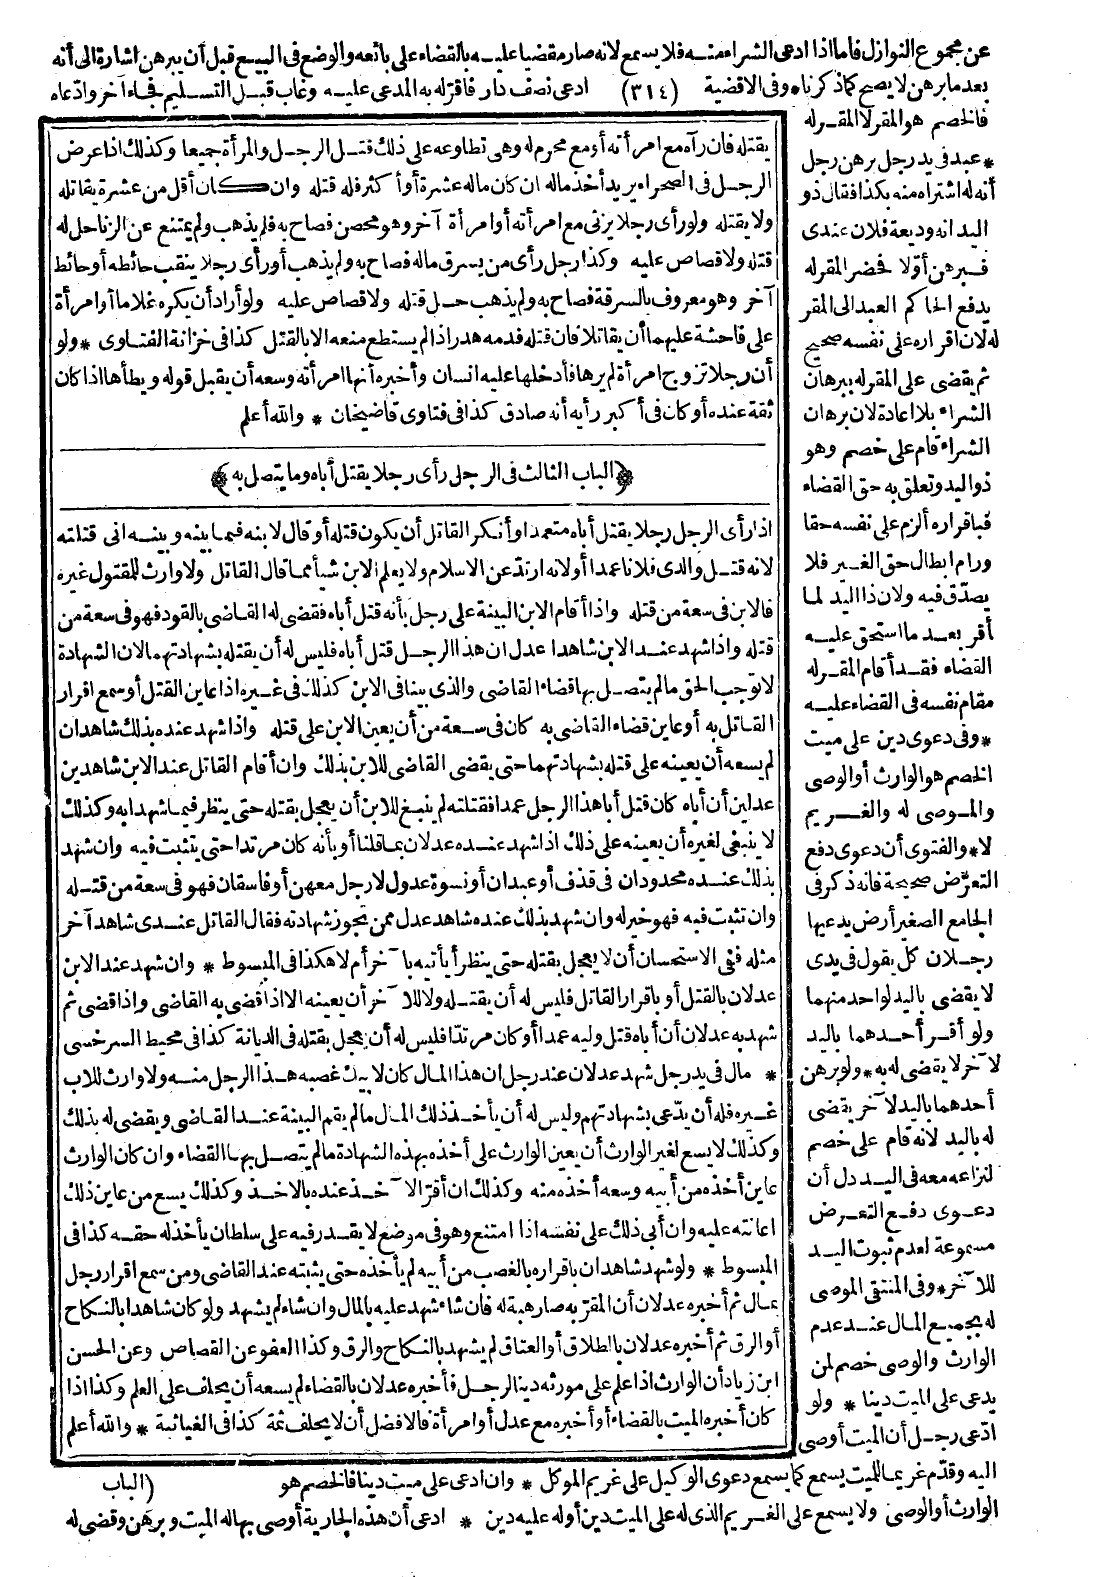 عن مجموع النوازل فاما اذا ادعى الشراء منه فلا يسمع لانه صار مقضيا عليه بالقضاء على بائعه والوضع فى البيع قبل أن يبرهن اشارة الى أنه
بعد ما برهن لا يصح كما ذكرنا * وفى الاقضية (٣١٤) ادعى نصف دار فاقرله به المدعى عليه وغاب قبل التسليم فجاء آخر وادعاه
فالخصم هو المقر لا المقرله
* عبد فى يد رجل برهن رجل
أنه له اشتراه منه بكذا فقال ذو
اليد انه وديعة فلان عندى
فبرهن أولا فحضر المقرله
يدفع الحاكم العبد الى المقر
له لان اقراره على نفسه صحيح
ثم يقضى على المقرله ببرهان
الشراء بلا اعادة لان برهان
الشراء قام على خصم وهو
ذو اليد وتعلق به حق القضاء
فباقراره ألزم على نفسه حقا
ورام ابطال حق الغير فلا
يصدق فيه ولان ذا اليد لما
أقر بعد ما استحق عليه
القضاء فقد أقام المقرله
مقام نفسه فى القضاء عليه
* وفى دعوى دين على ميت
الخصم هو الوارث أو الوصى
والموصى له والغريم
لا * والفتوى أن دعوى دفع
التعرض صحيحة فانه ذكر فى
الجامع الصغير أرض يدعيها
رجلان كل يقول فى يدى
لا يقضى باليد لواحد منهما
ولو أقر أحدهما باليد
لآخر لا يقضى له به * ولو برهن
أحدهما باليد لآخر يقضى
له باليد لانه قام على خصم
لنزاعه معه فى اليد دل أن
دعوى دفع التعرض
مسموعة لعدم ثبوت اليد
للآخر * وفى المنتقى الموصى
له بجميع المال عند عدم
الوارث والوصى خصم لمن
يدعى على الميت دينا * ولو
ادعى رجل أن الميت أوصى
يقتله فان رآه مع امرأته أو مع محرم له وهى تطاوعه على ذلك قتل الرجل والمرأة جميعا وكذلك اذا عرض
الرجل فى الصحراء يريد أخذ ماله ان كان ماله عشرة أو أكثر فله قتله وان كان أقل من عشرة يقاتله
ولا يقتله ولو رأى رجلا يزنى مع امرأته أو امرأة آخر وهو محصن فصاح به فلم يذهب ولم يمتنع عن الزنا حل له
قتله ولا قصاص عليه وكذا رجل رأى من يسرق ماله فصاح به ولم يذهب أو رأى رجلا ينقب حائطه أو حائط
آخر وهو معروف بالسرقة فصاح به ولم يذهب حل قتله ولا قصاص عليه ولو أراد أن يكره غلاما أو امرأة
على فاحشة عليهما أن يقاتلا فان قتله فدمه هدر اذا لم يستطع منعه الا بالقتل كذا فى خزانة الفتاوى * ولو
أن رجلا تزوج امرأة لم يرها فأدخلها عليه انسان وأخبره أنها امرأته وسعه أن يقبل قوله ويطأها اذا كان
ثقة عنده أو كان فى أكبر رأيه أنه صادق كذا فى فتاوى قاضيخان * والله أعلم
﴿الباب الثالث فى الرجل رأى رجلا يقتل أباه وما يتصل به﴾
اذا رأى الرجل رجلا يقتل أباه متعمدا وأنكر القاتل أن يكون قتله أو قال لابنه فيما بينه وبينه انى قتلته
لانه قتل والدى فلانا عمدا أو لانه ارتد عن الاسلام ولا يعلم الابن شيأ مما قال القاتل ولا وارث للمقتول غيره
فالابن فى سعة من قتله واذا أقام الابن البينة على رجل بأنه قتل أباه فقضى له القاضى بالقود فهو فى سعة من
قتله واذا شهد عند الابن شاهدا عدل ان هذا الرجل قتل أباه فليس له أن يقتله بشهادتهما لان الشهادة
لا توجب الحق ما لم يتصل بها قضاء القاضى والذى بينا فى الابن كذلك فى غيره اذا عاين القتل أو سمع اقرار
القاتل به أو عاين قضاء القاضى به كان فى سعة من أن يعين الابن على قتله واذا شهد عنده بذلك شاهدان
لم يسعه أن يعينه على قتله بشهادتهما حتى يقضى القاضى للابن بذلك وان أقام القاتل عند الابن شاهدين
عدلين أن أباه كان قتل أبا هذا الرجل عمدا فقتلته لم ينبغ للابن أن يعجل بقتله حتى ينظر فيما شهدا به وكذلك
لا ينبغى لغيره أن يعينه على ذلك اذا شهد عنده عدلان بما قلنا أو بأنه كان مرتدا حتى يتثبت فيه وان شهد
بذلك عنده محدودان فى قذف أو عبدان أو نسوة عدول لا رجل معهن أو فاسقان فهو فى سعة من قتله
وان تثبت فيه فهو خير له وان شهد بذلك عنده شاهد عدل ممن تجوز شهادته فقال القاتل عندى شاهد آخر
مثله ففى الاستحسان أن لا يعجل بقتله حتى ينظر أيأتيه بآخر أم لا هكذا فى المبسوط * وان شهد عند الابن
عدلان بالقتل أو باقرار القاتل فليس له أن يقتله ولا للآخر أن يعينه الا اذا قضى به القاضى واذا قضى ثم
شهد به عدلان أن أباه قتل وليه عمدا أو كان مرتدا فليس له أن يعجل بقتله فى الديانة كذا فى محيط السرخسى
* مال فى يد رجل شهد عدلان عند رجل ان هذا المال كان لابيك غصبه هذا الرجل منه ولا وارث للاب
غيره فله أن يدعى بشهادتهم وليس له أن يأخذ ذلك المال ما لم يقم البينة عند القاضى ويقضى له بذلك
وكذلك لا يسع لغير الوارث أن يعين الوارث على أخذه بهذه الشهادة ما لم يتصل بها القضاء وان كان الوارث
عاين أخذه من أبيه وسعه أخذه منه وكذلك ان أقر الآخذ عنده بالاخذ وكذلك يسع من عاين ذلك
اعانته عليه وان أبى ذلك على نفسه اذا امتنع وهو فى موضع لا يقدر فيه على سلطان يأخذ له حقه كذا فى
المبسوط * ولو شهد شاهدان باقراره بالغصب من أبيه لم يأخذه حتى يثبته عند القاضى ومن سمع اقرار رجل
بمال ثم أخبره عدلان أن المقر به صار هبة له فان شاء شهد عليه بالمال وان شاء لم يشهد ولو كان شاهدا بالنكاح
أو الرق ثم أخبره عدلان بالطلاق أو العتاق لم يشهد بالنكاح والرق وكذا العفو عن القصاص وعن الحسن
ابن زياد أن الوارث اذا علم على مورثه دينا لرجل فأخبره عدلان بالقضاء لم يسعه أن يحلف على العلم وكذا اذا
كان أخبره الميت بالقضاء أو أخبره مع عدل أو امرأة فالافضل أن لا يحلف ثمة كذا فى الغياثية * والله أعلم
اليه وقدم غريما للميت يسمع كما يسمع دعوى الوكيل على غريم الموكل * وان ادعى على ميت دينا فالخصم هو (الباب
الوارث أو الوصى ولا يسمع على الغريم الذى له على الميت دين أو له عليه دين * ادعى أن هذه الجارية أوصى بها له الميت وبرهن وقضى له